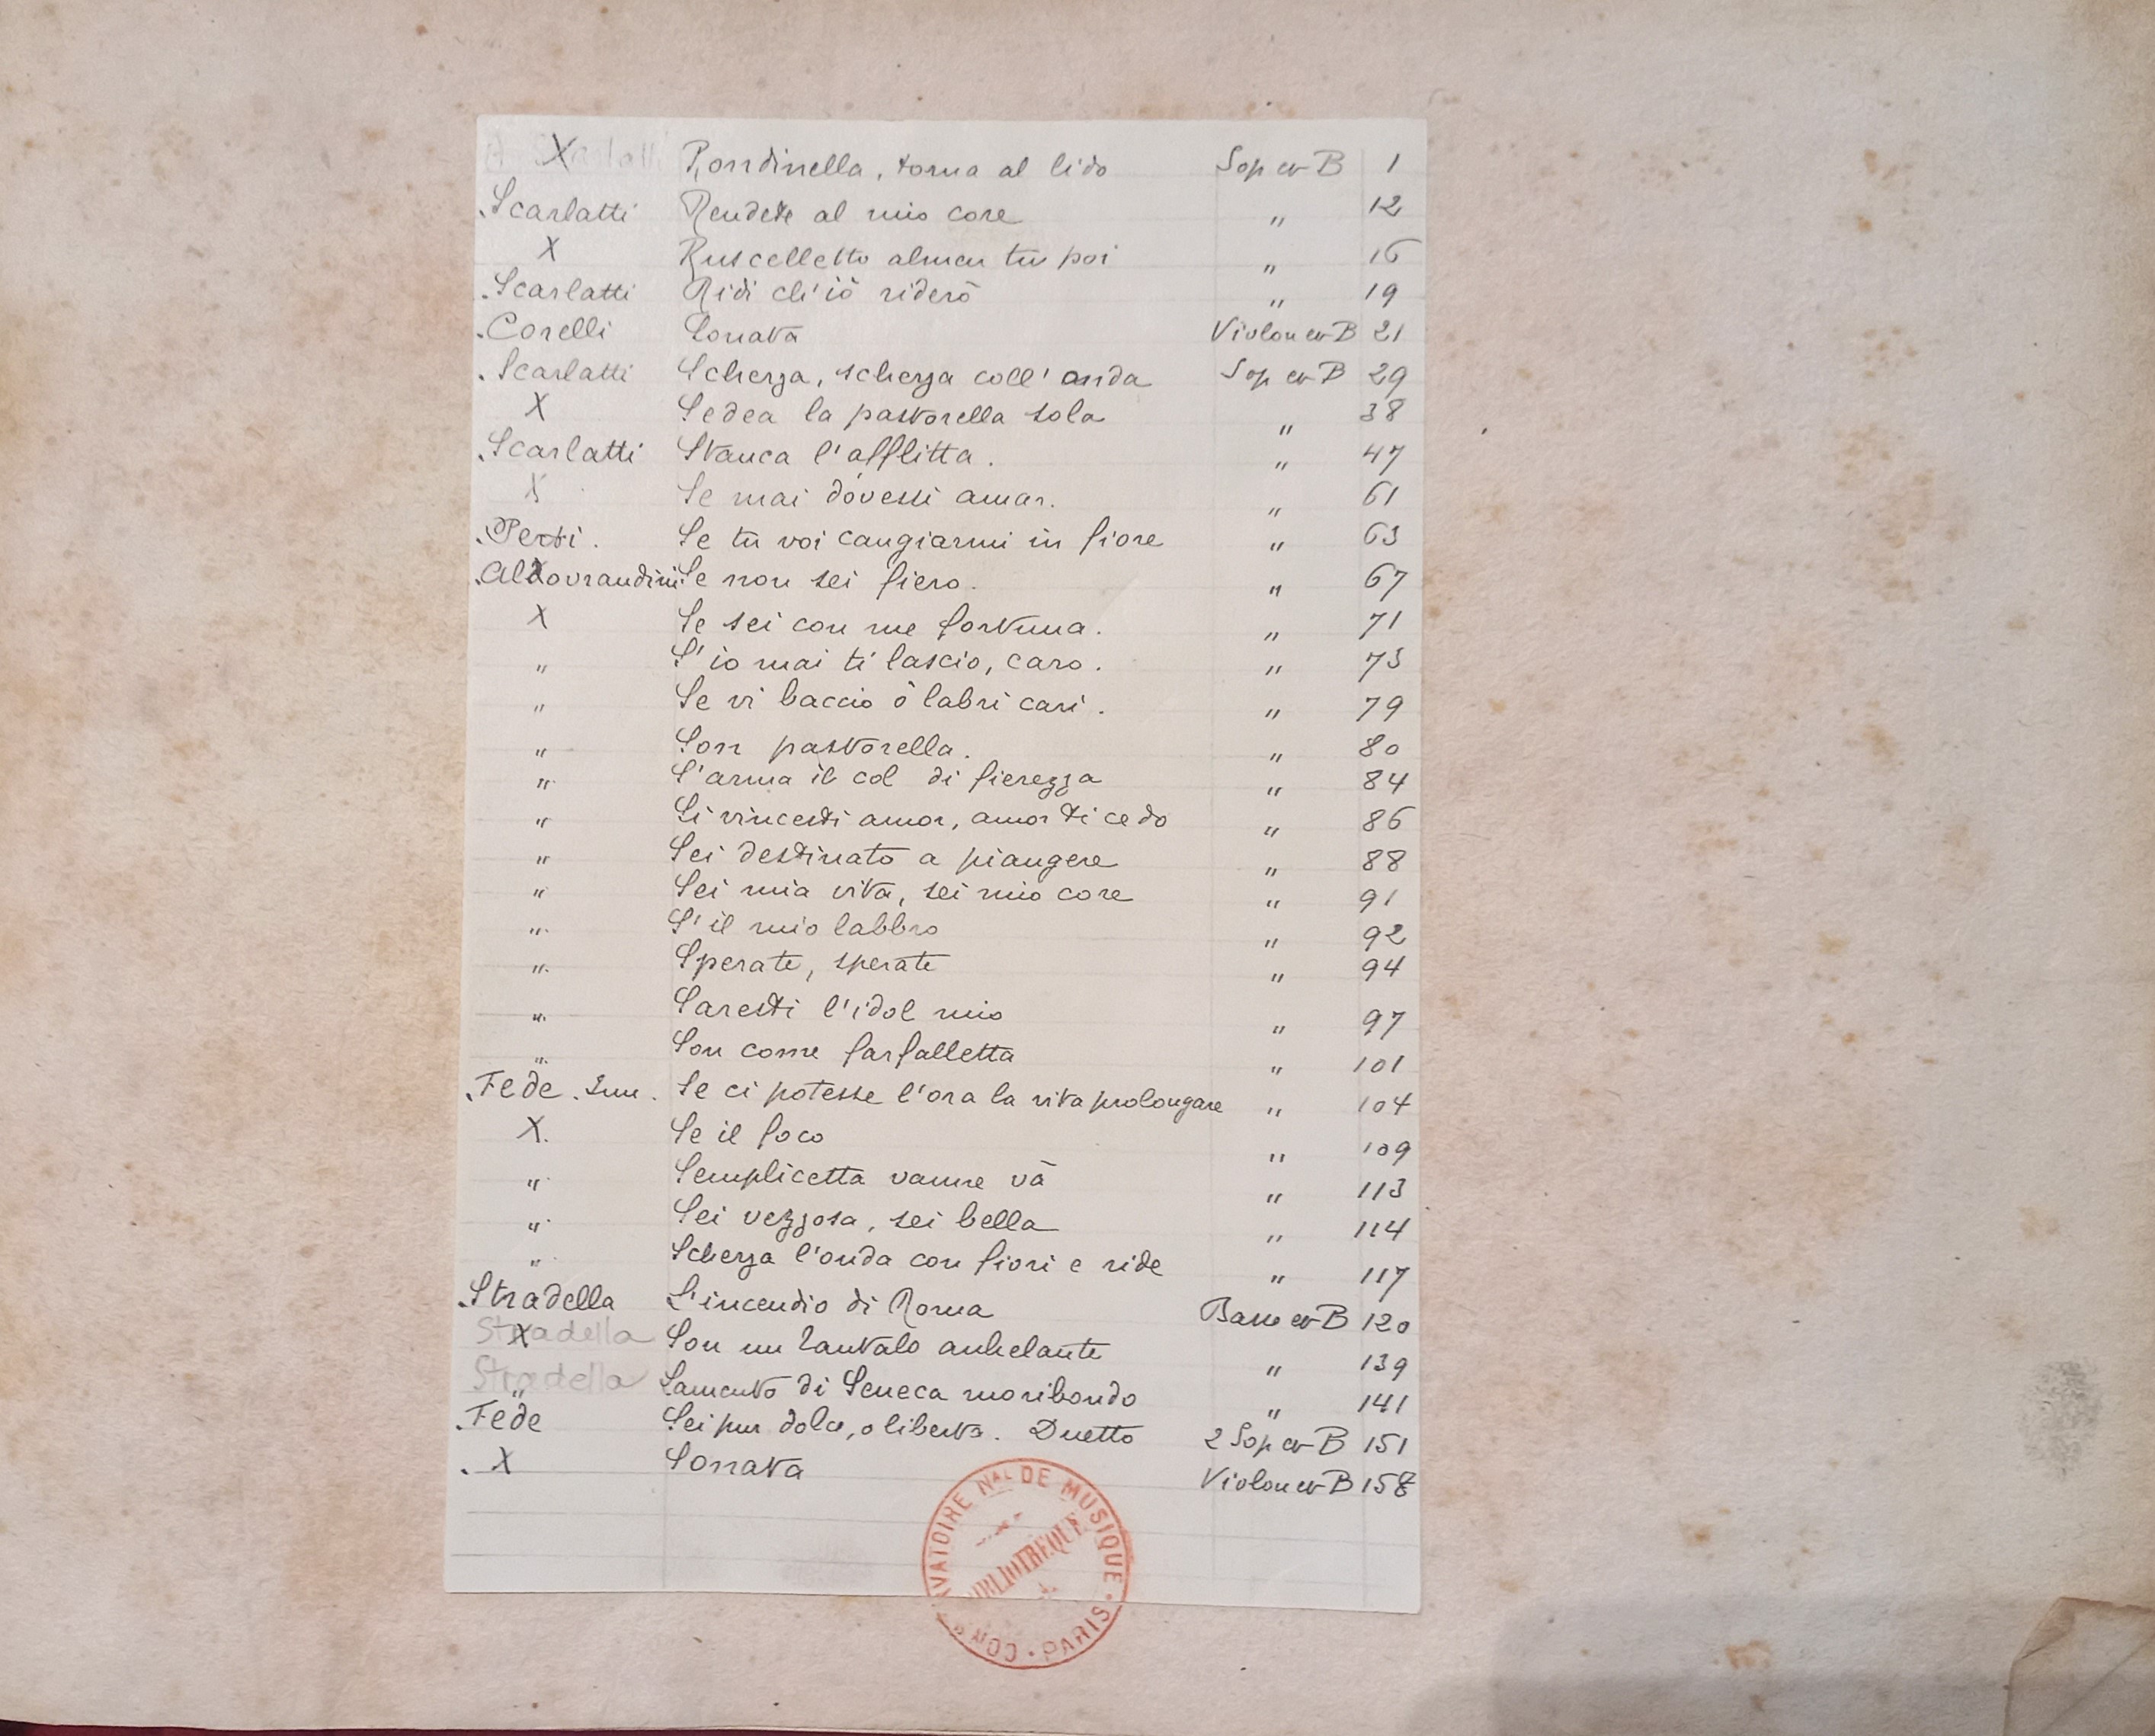 A Scarlatti X Rondinella, torna al lido Sop et B 1
.Scarlatti Rendete al mio core " 12
X Ruscelletto almen tu poi " 16
.Scarlatti Ridi ch'iò riderò " 19
.Corelli Sonata Violon et B 21
.Scarlatti Scherza, scherza coll' onda Sop et B 29
X Sedea la pastorella sola " 38
.Scarlatti Stanca l'afflitta. " 47
X Se mai dovessi amar. " 61
.Perti. Se tu voi cangiarmi in fiore " 63
.Aldovrandini Se non sei fiero. " 67
X Se sei con me fortuna. " 71
" S'io mai ti lascio, caro. " 73
" Se vi baccio ò labri cari. " 79
" Son pastorella. " 80
" S'arma il col di fierezza " 84
" Si vincesti amor, amor ti cedo " 86
" Sei destinato a piangere " 88
" Sei mia vita, sei mio core " 91
" S'il mio labbro " 92
" Sperate, sperate " 94
" Saresti l'idol mio " 97
" Son come farfalletta " 101
.Fede. Se ci potesse l'ora la vita prolongare " 104
X. Se il foco " 109
" Semplicetta vanne và " 113
" Sei vezzosa, sei bella " 114
" Scherza l'onda con fiori e ride " 117
.Stradella L'incendio di Roma Basso et B 120
Stradella X Son un Tantalo anhelante " 139
Stradella " Lamento di Seneca moribondo " 141
.Fede Sei pur dolce, o liberta. Duetto 2 Sop et B 151
. X Sonnata Violon et B 158
CONSERVATOIRE NAL DE MUSIQUE · PARIS ·
BIBLIOTHÈQUE